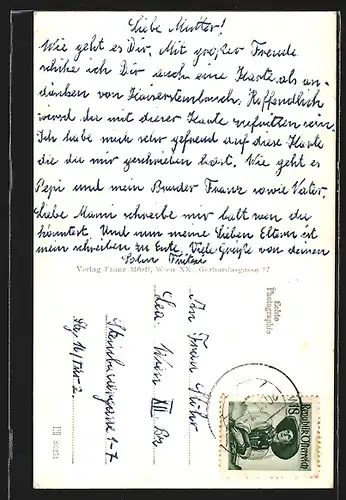 Liebe Mutter!
Wie geht es Dir. Mit großer Freude
schike ich Dir auch eine Karte als an-
dänken von Kaisersteinbruch. Hoffendlich
wirst du mit deiner Karte zufritten sein.
Ich habe mich sehr gefreud auf diese Karte
die du mir geschrieben hast. Wie geht es
Pepi und mein Bruder Franz sowie Vater.
Liebe Mami schreibe mir halt wen du
könntest. Und nun meine Lieben Eltern ist
mein schreiben zu Ente. Viele Grüße von deinen
Sohn
Verlag Franz Mörtl, Wien XX., Gerhardusgasse 27
Echte
Photographie
An Frau
Wien XII. Bz.
Steinbauergasse 1-7
Stg. 11/Tür 2.
Republik Österreich
1S